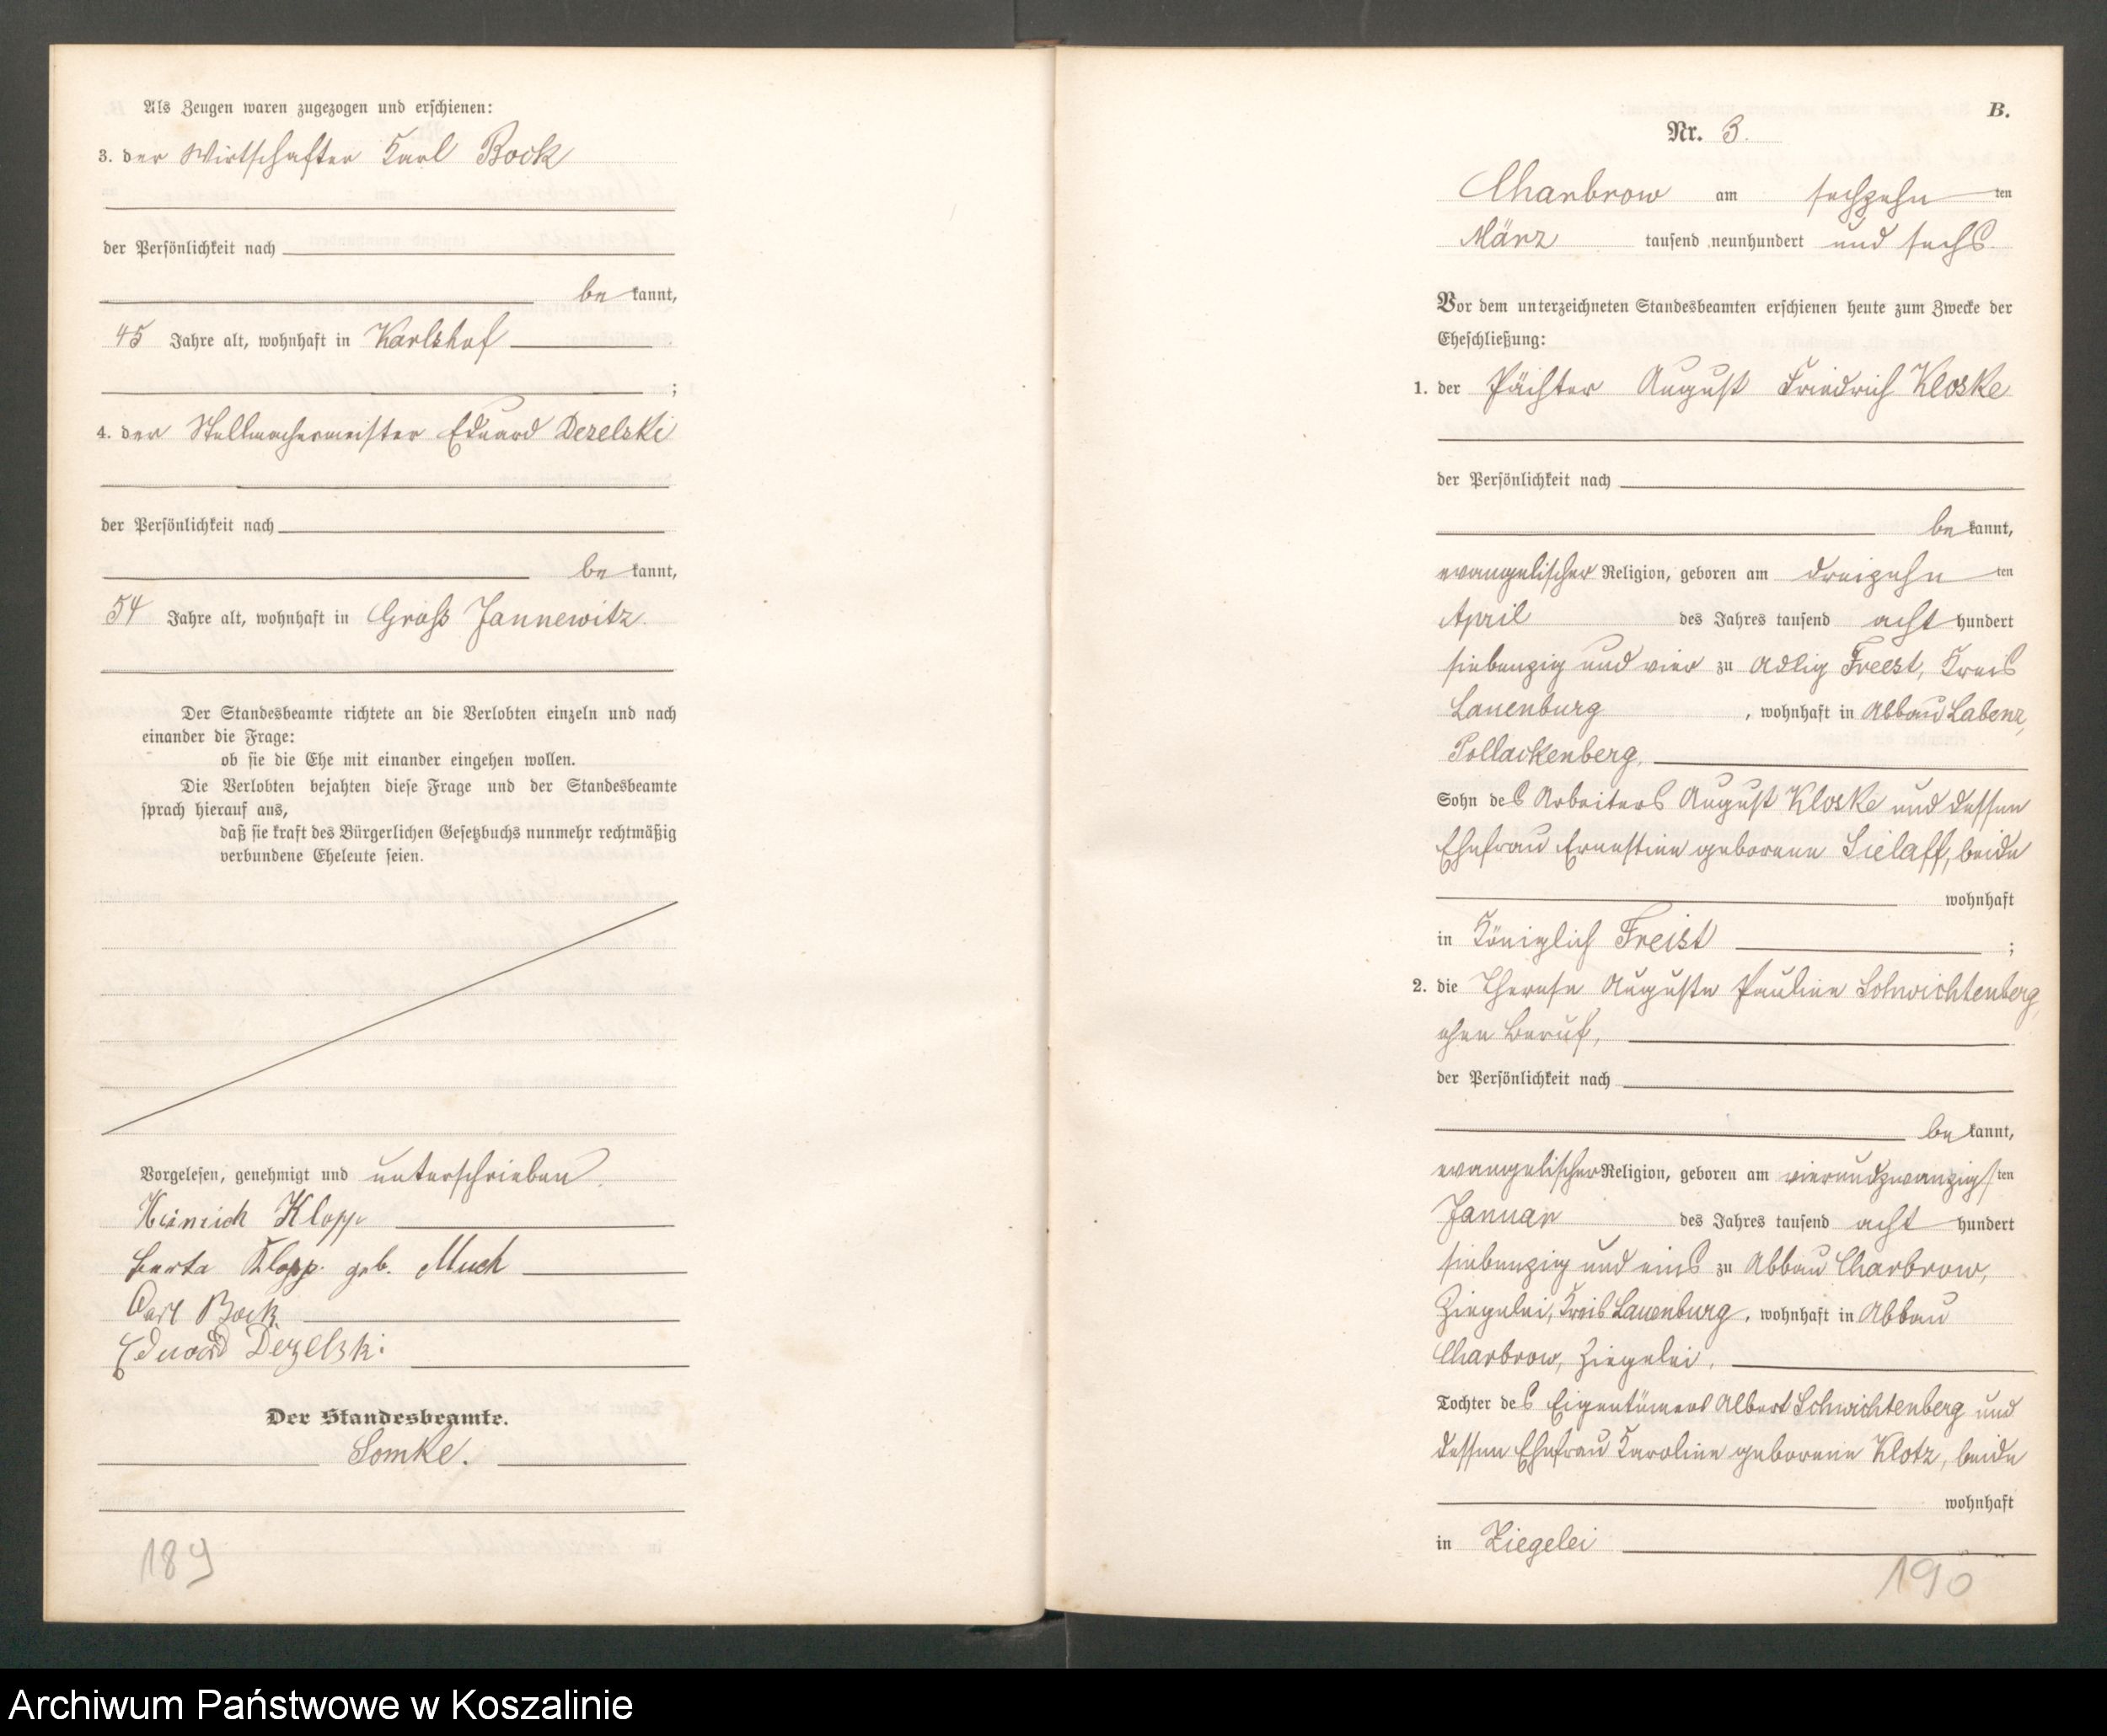 Als Zeugen waren zugezogen und erschienen:
3. der Wirtschafter Karl Bock
der Persönlichkeit nach
be kannt,
45 Jahre alt, wohnhaft in Karlshof
;
4. der Stellmachermeister Eduard Dezelski
der Persönlichkeit nach
be kannt,
54 Jahre alt, wohnhaft in Gross Jannewitz.
Der Standesbeamte richtete an die Verlobten einzeln und nach
einander die Frage:
ob sie die Ehe mit einander eingehen wollen.
Die Verlobten bejahten diese Frage und der Standesbeamte
sprach hierauf aus,
daß sie kraft des Bürgerlichen Gesetzbuchs nunmehr rechtmäßig
verbundene Eheleute seien.
Vorgelesen, genehmigt und unterschrieben.
Heinrich Klopp
Berta Klopp geb. Much
Carl Bock
Eduard Dezelski
Der Standesbeamte.
Lomke.
189
B.
Nr. 3.
Charbrow am sechzehn ten
März tausend neunhundert und sechs.
Vor dem unterzeichneten Standesbeamten erschienen heute zum Zwecke der
Eheschließung:
1. der Pächter August Friedrich Kloske
der Persönlichkeit nach
be kannt,
evangelischer Religion, geboren am dreizehn ten
April des Jahres tausend acht hundert
siebenzig und vier zu Adlig Freest, Kreis
Lauenburg, wohnhaft in Abbau Labenz,
Pollackenberg,
Sohn des Arbeiters August Kloske und dessen
Ehefrau Ernestine geborene Sielaff, beide
wohnhaft
in Königlich Freist ;
2. die Therese Auguste Pauline Schwichtenberg,
ohne Beruf,
der Persönlichkeit nach
be kannt,
evangelischer Religion, geboren am vierundzwanzigsten
Januar des Jahres tausend acht hundert
siebenzig und eins zu Abbau Charbrow,
Ziegelei, Kreis Lauenburg, wohnhaft in Abbau
Charbrow, Ziegelei,
Tochter des Eigentümers Albert Schwichtenberg und
dessen Ehefrau Karoline geborene Klotz, beide
wohnhaft
in Ziegelei
190
Archiwum Państwowe w Koszalinie